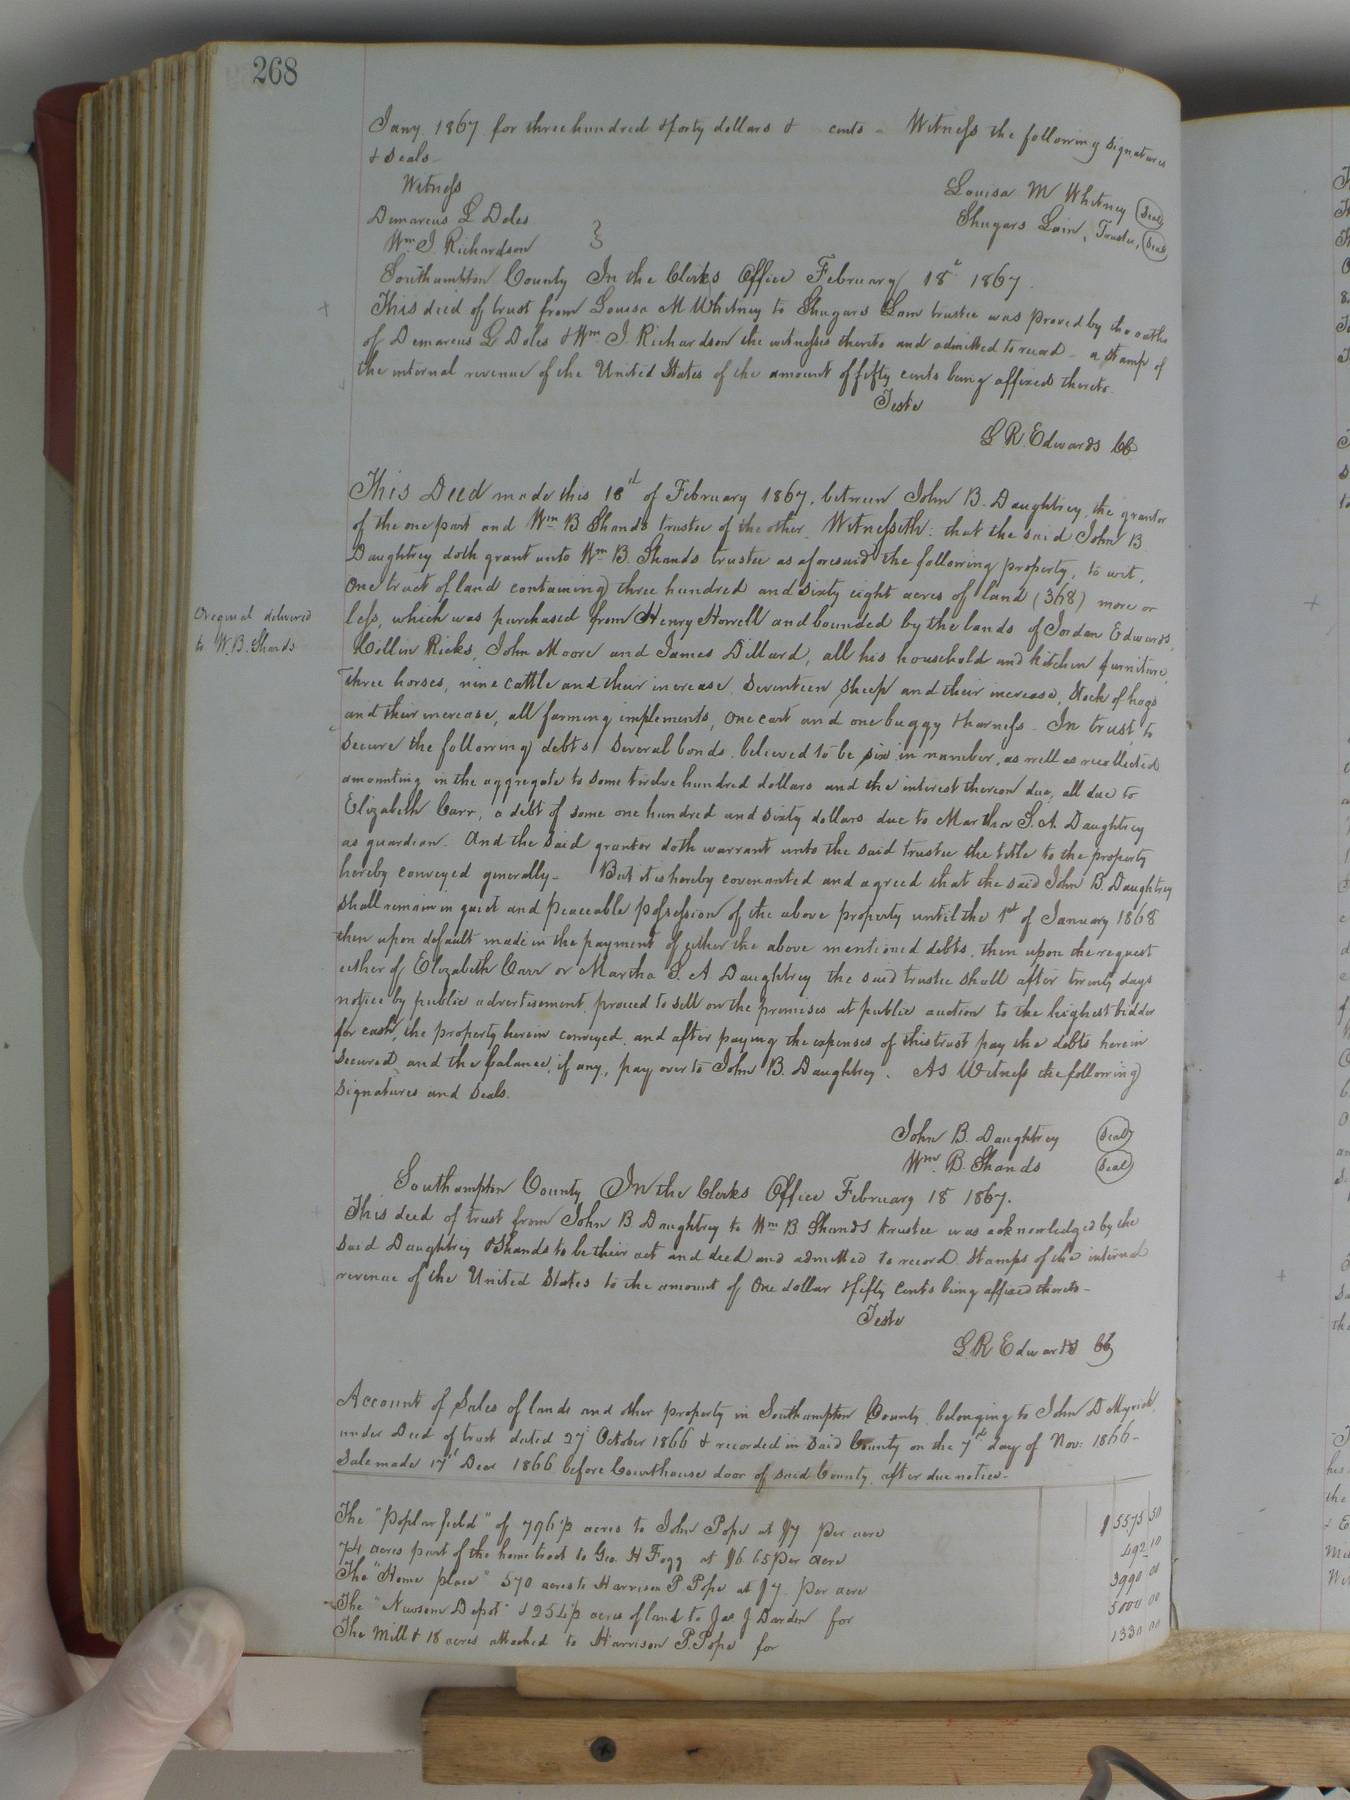 268
Jany. 1867 for three hundred & forty dollars & cents - Witness the following signatures
& Seals -
Witness
Louisa M Whitney (Seal)
Demarcus L Doles
Shugars Lain, Trustee, (Seal)
Wm. J. Richardson
Southampton County In the Clerks Office February 18th 1867.
This deed of trust from Louisa M Whitney to Shugars Lain trustee was proved by the oaths
of Demarcus L Doles & Wm. J. Richardson the witnesses thereto and admitted to record - a stamp of
the internal revenue of the United States of the amount of fifty cents being affixed thereto.
Teste
L R. Edwards CC
This Deed made this 18th of February 1867, between John B. Daughtrey, the grantor
of the one part and Wm B Shands trustee of the other. Witnesseth: that the said John B
Daughtrey doth grant unto Wm B. Shands trustee as aforesaid the following property, to wit,
One tract of land containing three hundred and sixty eight acres of land (368) more or
less, which was purchased from Henry Horrell and bounded by the lands of Jordan Edwards,
Original delivered
to W. B. Shands
Collin Ricks, John Moore and James Dillard, all his household and kitchen furniture,
three horses, nine cattle and their increase, seventeen sheep and their increase, stock of hogs
and their increase, all farming implements, one cart and one buggy & harness. In trust to
secure the following debts, Several bonds, believed to be six in number, as well as recollected
amounting in the aggregate to some twelve hundred dollars and the interest thereon due, all due to
Elizabeth Carr, a debt of some one hundred and sixty dollars due to Martha S. A. Daughtrey
as guardian. And the said grantor doth warrant unto the said trustee the title to the property
hereby conveyed generally - But it is hereby covenanted and agreed that the said John B. Daughtrey
shall remain in quiet and peaceable possession of the above property until the 1st of January 1868
then upon default made in the payment of either the above mentioned debts, then upon the request
either of Elizabeth Carr or Martha S. A Daughtrey the said trustee shall after twenty days
notice by public advertisement, proceed to sell on the premises at public auction to the highest bidder
for cash, the property herein conveyed, and after paying the expenses of this trust pay the debts herein
secured, and the balance, if any, pay over to John B. Daughtrey. As Witness the following
signatures and seals.
John B. Daughtrey (Seal)
Wm. B. Shands (Seal)
Southampton County In the Clerks Office February 18 1867.
This deed of trust from John B Daughtrey to Wm B Shands trustee was acknowledged by the
said Daughtrey & Shands to be their act and deed and admitted to record. Stamps of the internal
revenue of the United States to the amount of One dollar & fifty cents being affixed thereto -
Teste
L R Edwards CC
Account of Sales of lands and other property in Southampton County, belonging to John D Myrick,
under Deed of trust dated 27 October 1866 & recorded in said County on the 7th day of Nov: 1866 -
Sale made 17th Decr 1866 before Courthouse door of said County, after due notice -
The "Poplar field" of 796½ acres to John Pope at $7 per acre $5575 50
74 acres part of the home tract to Geo. H Fogg at $6.65 per acre 492 10
The "Home place" 570 acres to Harrison P Pope at $7. per acre 3990 00
The "Newsom Depot" & 254½ acres of land to Jas J Darden for 5000 00
The Mill & 18 acres attached to Harrison P. Pope for 1330 00